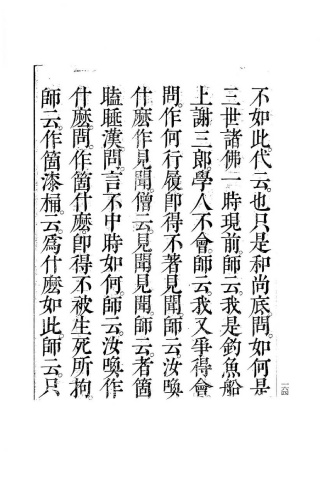 不如此。代云。也只是和尚底。問。如何是
三世諸佛一時現前。師云。我是釣魚船
上謝三郎。學人不會。師云。我又爭得會
問。作何行履。卽得不著見聞。師云。汝喚
什麽作見聞。僧云。見聞見聞。師云。者箇
瞌睡漢。問。言不中時如何。師云。汝喚作
什麽。問。作箇什麽。卽得不被生死所拘。
師云。作箇漆桶。云。爲什麽如此。師云。只
一六四